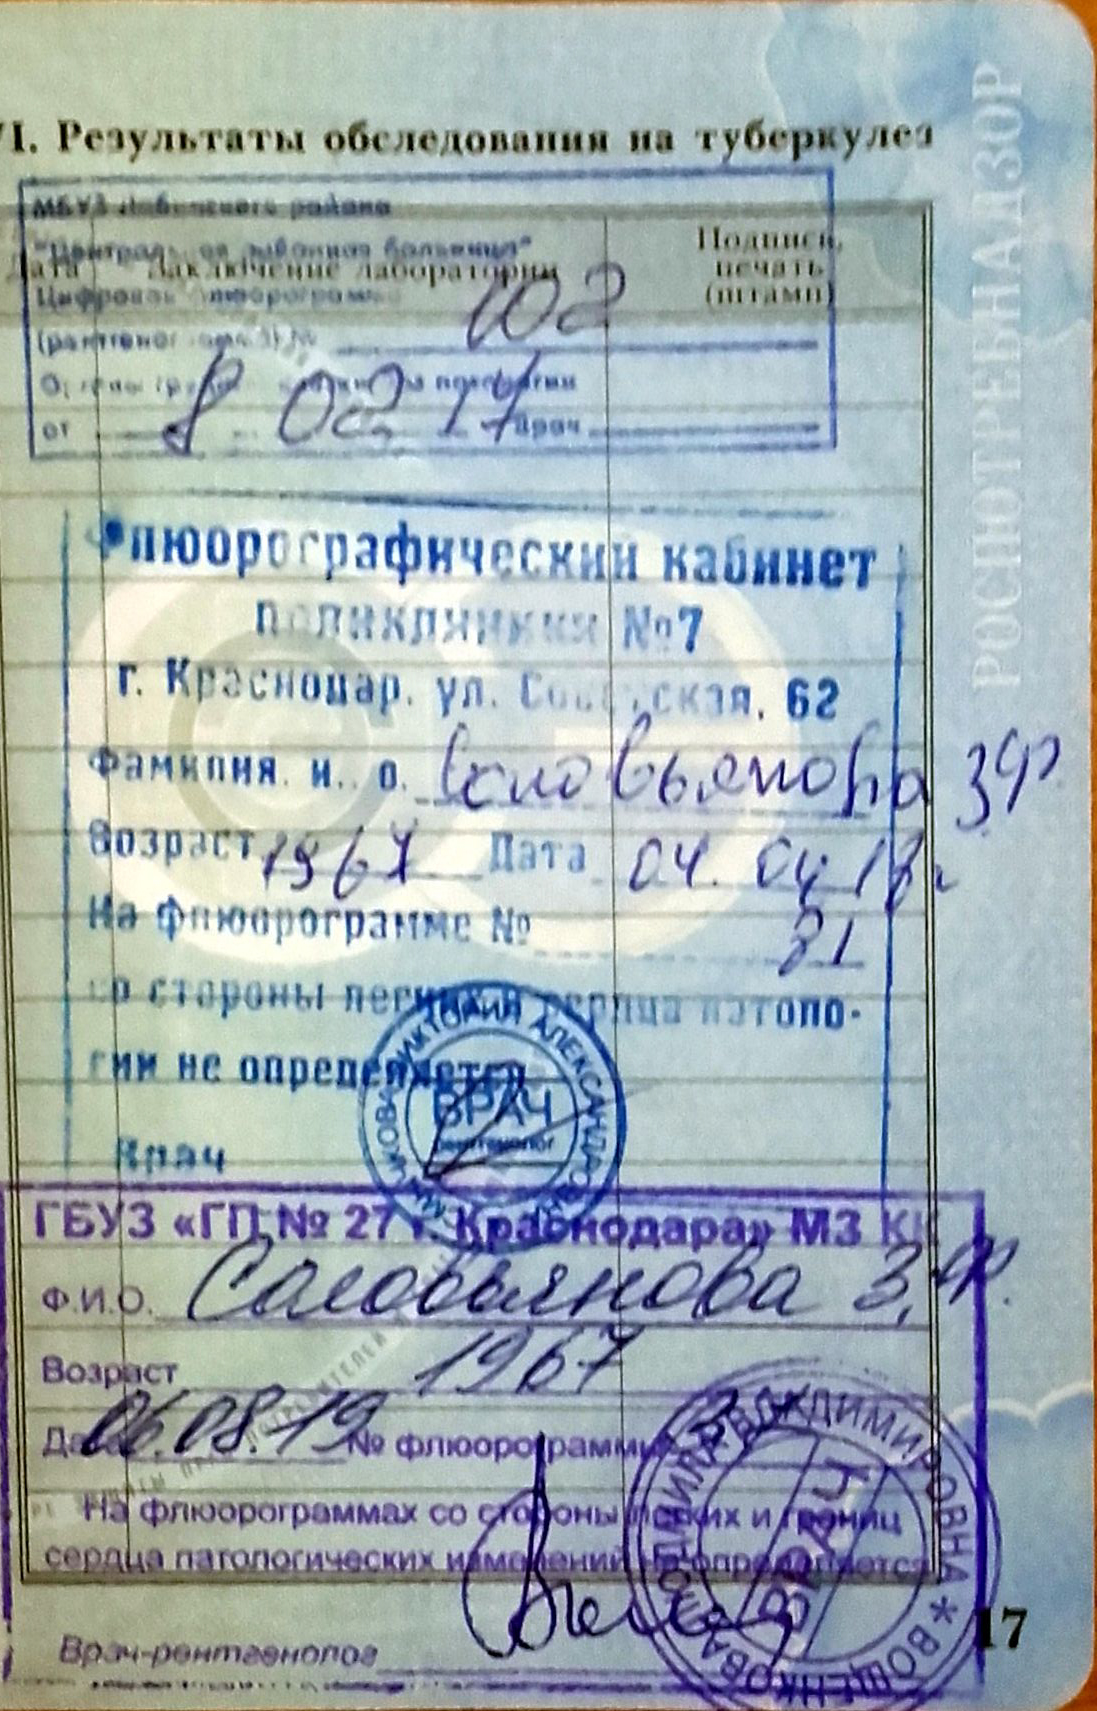 VI. Результаты обследования на туберкулез
РОСПОТРЕБНАДЗОР
МБУЗ района
"Центральная районная больница"
Дата Заключение лаборатории Подпись, печать (штамп)
Цифровая флюорограмма
№ 102
Органы
от 8 02 17 врач
Флюорографический кабинет
поликлиники №7
г. Краснодар, ул. Советская, 62
Фамилия, и., о. З.Ф.
Возраст 1967 Дата 04.04.18г
На флюорограмме № 81
со стороны легких и сердца патоло-
гии не определяется
Врач
ВИКТОРИЯ АЛЕКСАНДРОВНА
ВРАЧ
рентгенолог
ГБУЗ «ГП № 27 г. Краснодара» МЗ КК
Ф.И.О. Саловьянова З.Ф.
Возраст 1967
Дата 06.08.19 № флюорограммы
На флюорограммах со стороны легких и границ
сердца патологических изменений не определяется
Врач-рентгенолог
ВЛАДИМИРОВНА *
ВРАЧ
17